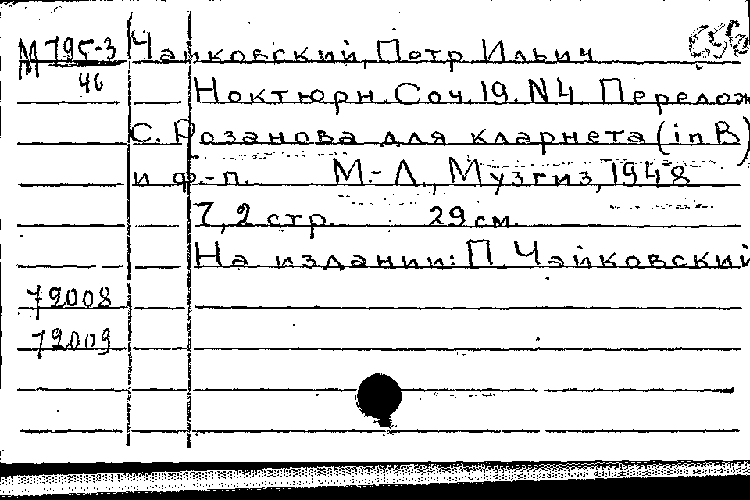 М 795-3 Чайковский, Петр Ильич
46
Ноктюрн. Соч. 19. N4 Перелож
С. Розанова для кларнета (in B)
и ф.-п. М.-Л., Музгиз, 1948
7, 2 стр. 29 см.
На издании: П. Чайковский
72008
72009